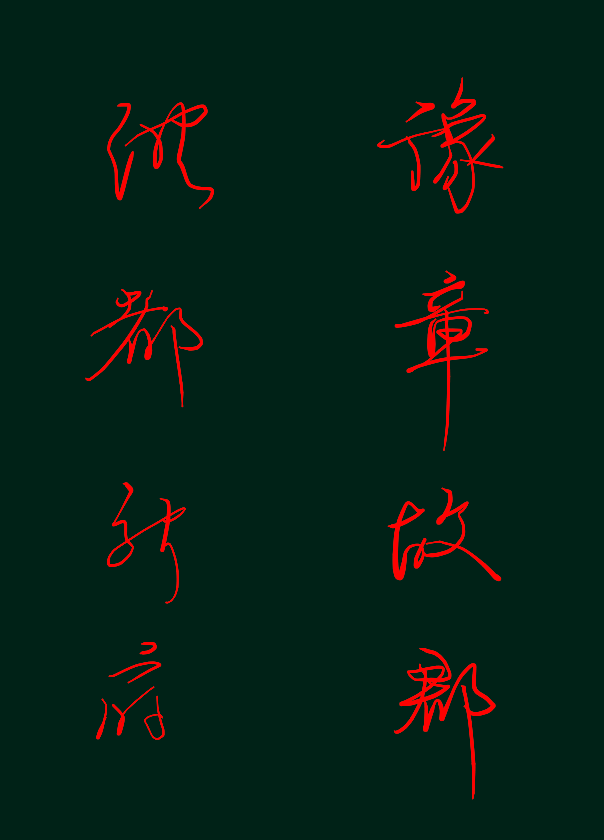 豫章故郡
洪都新府